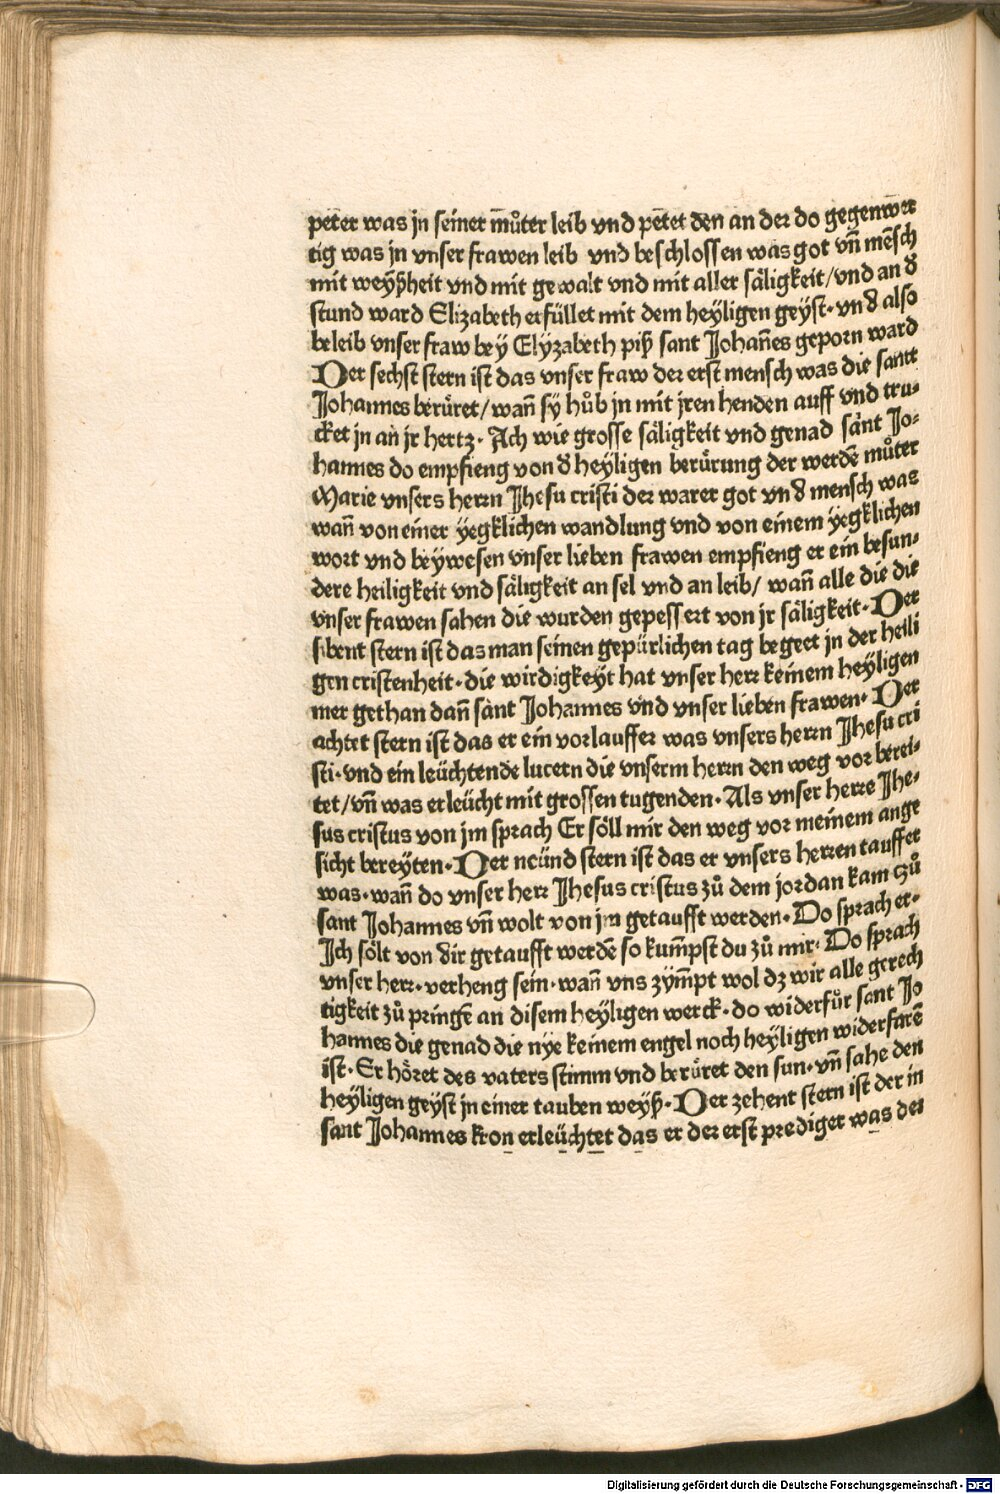 peter was jn seiner můter leib vnd petet den an der do gegenwer
tig was jn vnser frawen leib vnd beschlossen was got vñ mẽsch
mit weyßheit vnd mit gewalt vnd mit aller såligkeit/vnd an d̕
stund ward Elizabeth erfüllet mit dem heyligen geyst·vnd also
beleib vnser fraw bey Elyzabeth piß sant Johañes geporn ward
Der sechst stern ist das vnser fraw der erst mensch was die santt
Johannes berůret/wañ sy hůb jn mit jren henden auff vnd tru⸗
cket jn an jr hertz·Ach wie grosse såligkeit vnd genad sant Jo⸗
hannes do empfieng von d̕ heyligen berůrung der werdẽ můter
Marie vnsers herrn Jhesu cristi der warer got vnd mensch was
wañ von einer yegklichen wandlung vnd von einem yegklichen
wort vnd beywesen vnser lieben frawen empfieng er ein besun⸗
dere heiligkeit vnd såligkeit an sel vnd an leib/ wañ alle die die
vnser frawen sahen die wurden gepessert von jr såligkeit·Der
sibent stern ist das man seinen gepürlichen tag begeet jn der heili
gen cristenheit·die wirdigkeyt hat vnser herr keinem heyligen
mer gethan dañ sant Johannes vnd vnser lieben frawen·Der
achtet stern ist das er ein vorlauffer was vnsers herrn Jhesu cri
sti·vnd ein leüchtende lucern die vnserm herrn den weg vor berei⸗
tet/vñ was erleücht mit grossen tugenden·Als vnser herre Jhe⸗
sus cristus von jm sprach Er söll mir den weg vor meinem ange
sicht bereyten·Der neünd stern ist das er vnsers herren tauffer
was·wañ do vnser herr Jhesus cristus zů dem jordan kam zů
sant Johannes vñ wolt von jm getaufft werden·Do sprach er·
Jch sölt von dir getaufft werdẽ so kum̃pst du zů mir·Do sprach
vnser herr·verheng sein·wañ vns zym̃pt wol dz wir alle gerech
tigkeit zů pringẽ an disem heyligen werck·do widerfůr sant Jo
hannes die genad die nye keinem engel noch heyligen widerfarẽ
ist·Er höret des vaters stimm vnd berůret den sun·vñ sahe den
heyligen geyst jn einer tauben weyß·Der zehent stern ist der in
sant Johannes kron erleüchtet das er der erst prediger was der
Digitalisierung gefördert durch die Deutsche Forschungsgemeinschaft - DFG